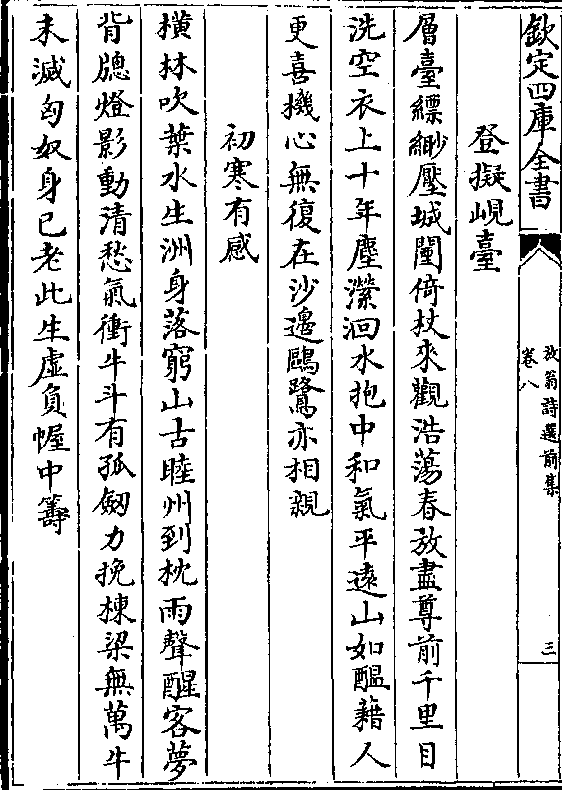 欽定四庫全書
放翁詩選前集
卷八
三
登擬峴臺
層臺縹緲壓城闉倚杖來觀浩蕩春放盡尊前千里目
洗空衣上十年塵瀠洄水抱中和氣平逺山如醖藉人
更喜機心無復在沙邊鷗鷺亦相親
初寒有感
横林吹葉水生洲身落窮山古睦州到枕雨聲醒客夢
背牕燈影動清愁氣衝牛斗有孤劔力挽棟梁無萬牛
未滅匈奴身已老此生虛負幄中籌